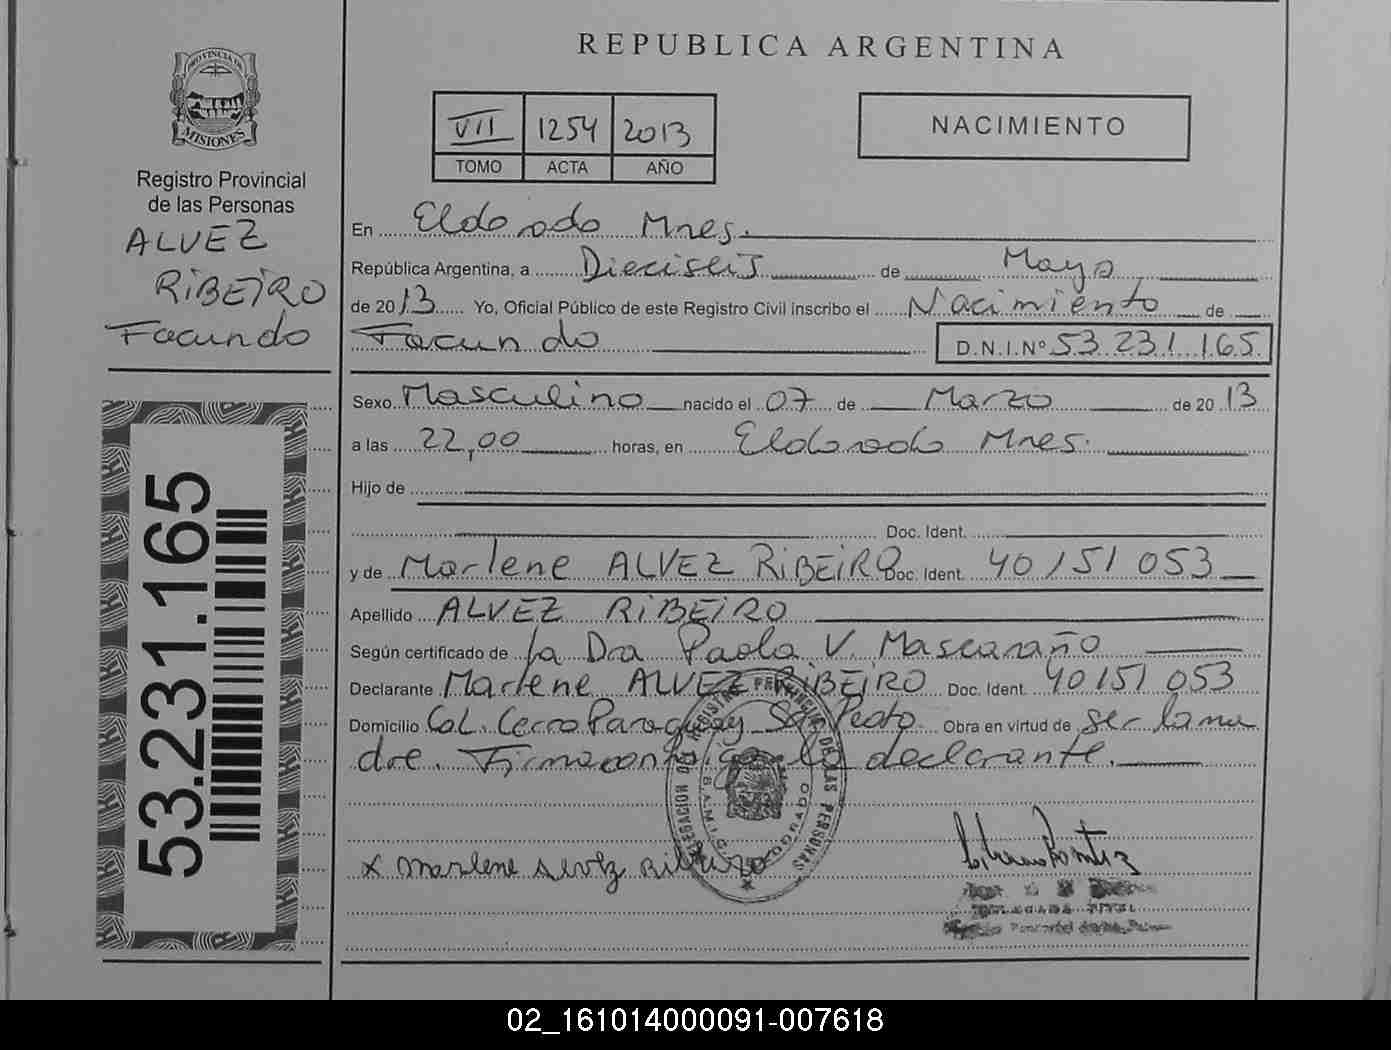 PROVINCIA DE
MISIONES
Registro Provincial
de las Personas
ALVEZ
RiBEiRO
Facundo
53.231.165
REPUBLICA ARGENTINA
VII 1254 2013
TOMO ACTA AÑO
NACIMIENTO
En Eldorado Mnes.
República Argentina, a Dieciseis de Mayo
de 2013 Yo, Oficial Público de este Registro Civil inscribo el Nacimiento de
Facundo D.N.I.Nº 53.231.165
Sexo Masculino nacido el 07 de Marzo de 2013
a las 22,00 horas, en Eldorado Mnes.
Hijo de
Doc. Ident.
y de Marlene ALVEZ RiBEiRO Doc. Ident. 40 151 053
Apellido ALVEZ RiBEiRO
Según certificado de la Dra Paola V. Mascaraño
Declarante Marlene ALVEZ RiBEiRO Doc. Ident. 40 151 053
Domicilio Col. Cerro Paraguay San Pedro Obra en virtud de ser la ma
dre. Firma conmigo la declarante.
DELEGACION DEL REGISTRO PROVINCIAL DE LAS PERSONAS
ELDORADO
x marlene Ribeiro
02_161014000091-007618